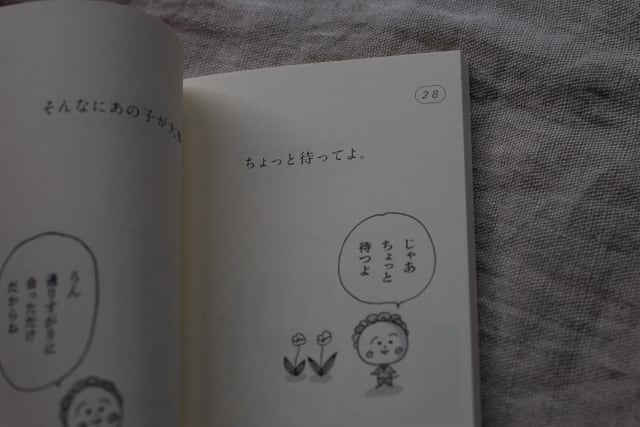 そんなにあの子が
うん
通りすがりに
会っただけ
だからね
28
ちょっと待ってよ。
じゃあ
ちょっと
待つよ